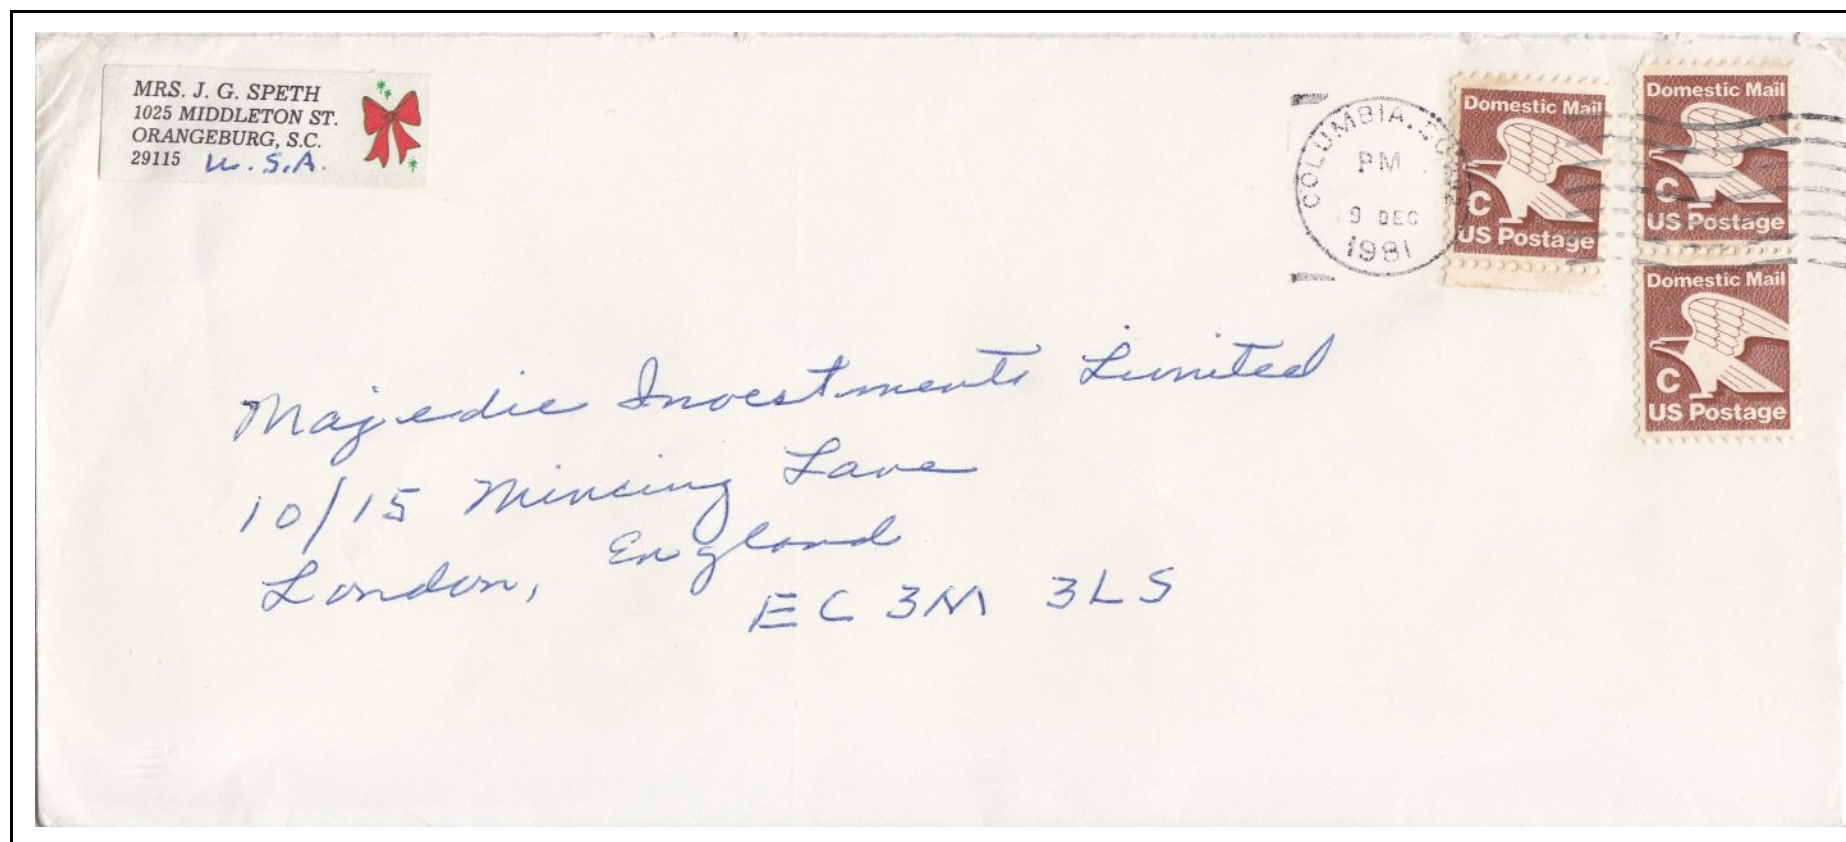 MRS. J. G. SPETH
1025 MIDDLETON ST.
ORANGEBURG, S.C.
29115 U.S.A.
COLUMBIA, SC
PM
9 DEC
1981
Domestic Mail
C
US Postage
Domestic Mail
C
US Postage
Domestic Mail
C
US Postage
Majedie Investments Limited
10/15 Mincing Lane
London, England
EC3M 3LS